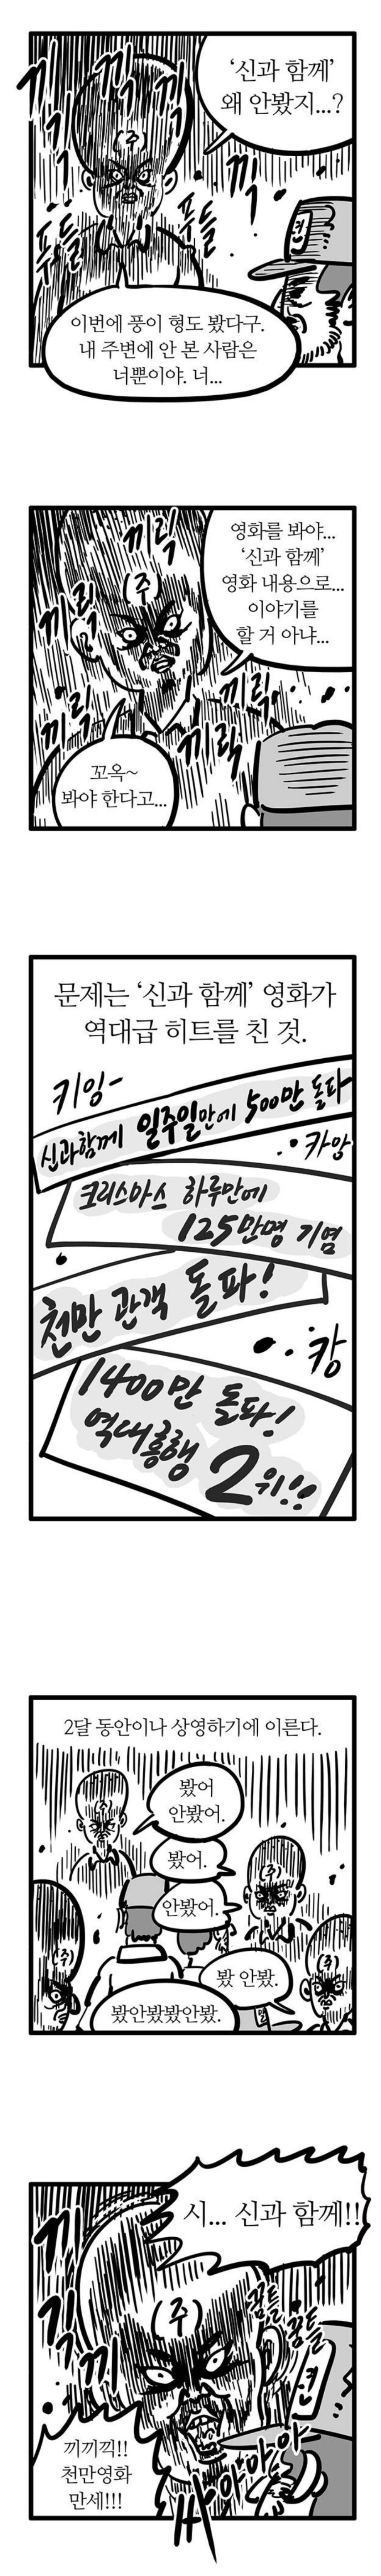 ‘신과 함께’
왜 안봤지...?
끼
끼
끽
끽
끼
(주)
푸들
푸들
련
이번에 풍이 형도 봤다구.
내 주변에 안 본 사람은
너뿐이야. 너...
영화를 봐야...
‘신과 함께’
영화 내용으로...
이야기를
할 거 아냐...
끼릭
(주)
끼릭
끼릭
끼릭
끼릭
꼬옥~
봐야 한다고...
문제는 ‘신과 함께’ 영화가
역대급 히트를 친 것.
키잉-
신과함께 일주일만에 500만 돌파
카앙
크리스마스 하루만에
125만명 기염
천만 관객 돌파!
캉
1400만 돌파!
역대흥행 2위!!
2달 동안이나 상영하기에 이른다.
봤어
안봤어.
(주)
봤어.
안봤어.
(주)
(주)
(주)
봤 안봤.
봤안봤봤안봤.
련
시... 신과 함께!!
끼
끼
끽
(주)
꿈틀
꿈틀
련
끼끼끽!!
천만영화
만세!!!
으아아아